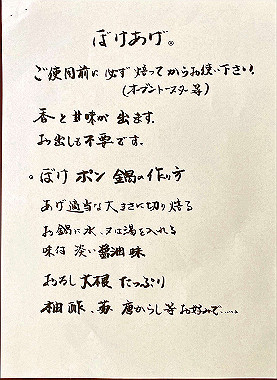 ぼけあげ。
ご使用前に必ず焙ってからお使い下さい。
(オーブントースター等)
香と甘味が出ます。
お出しも不要です。
。ぼけポン鍋の作り方
あげ適当な大きさに切り焙る
お鍋に水、又は湯を入れる
味付 淡い醤油味
おろし大根 たっぷり
柚酢、葱 唐からし等お好みで……